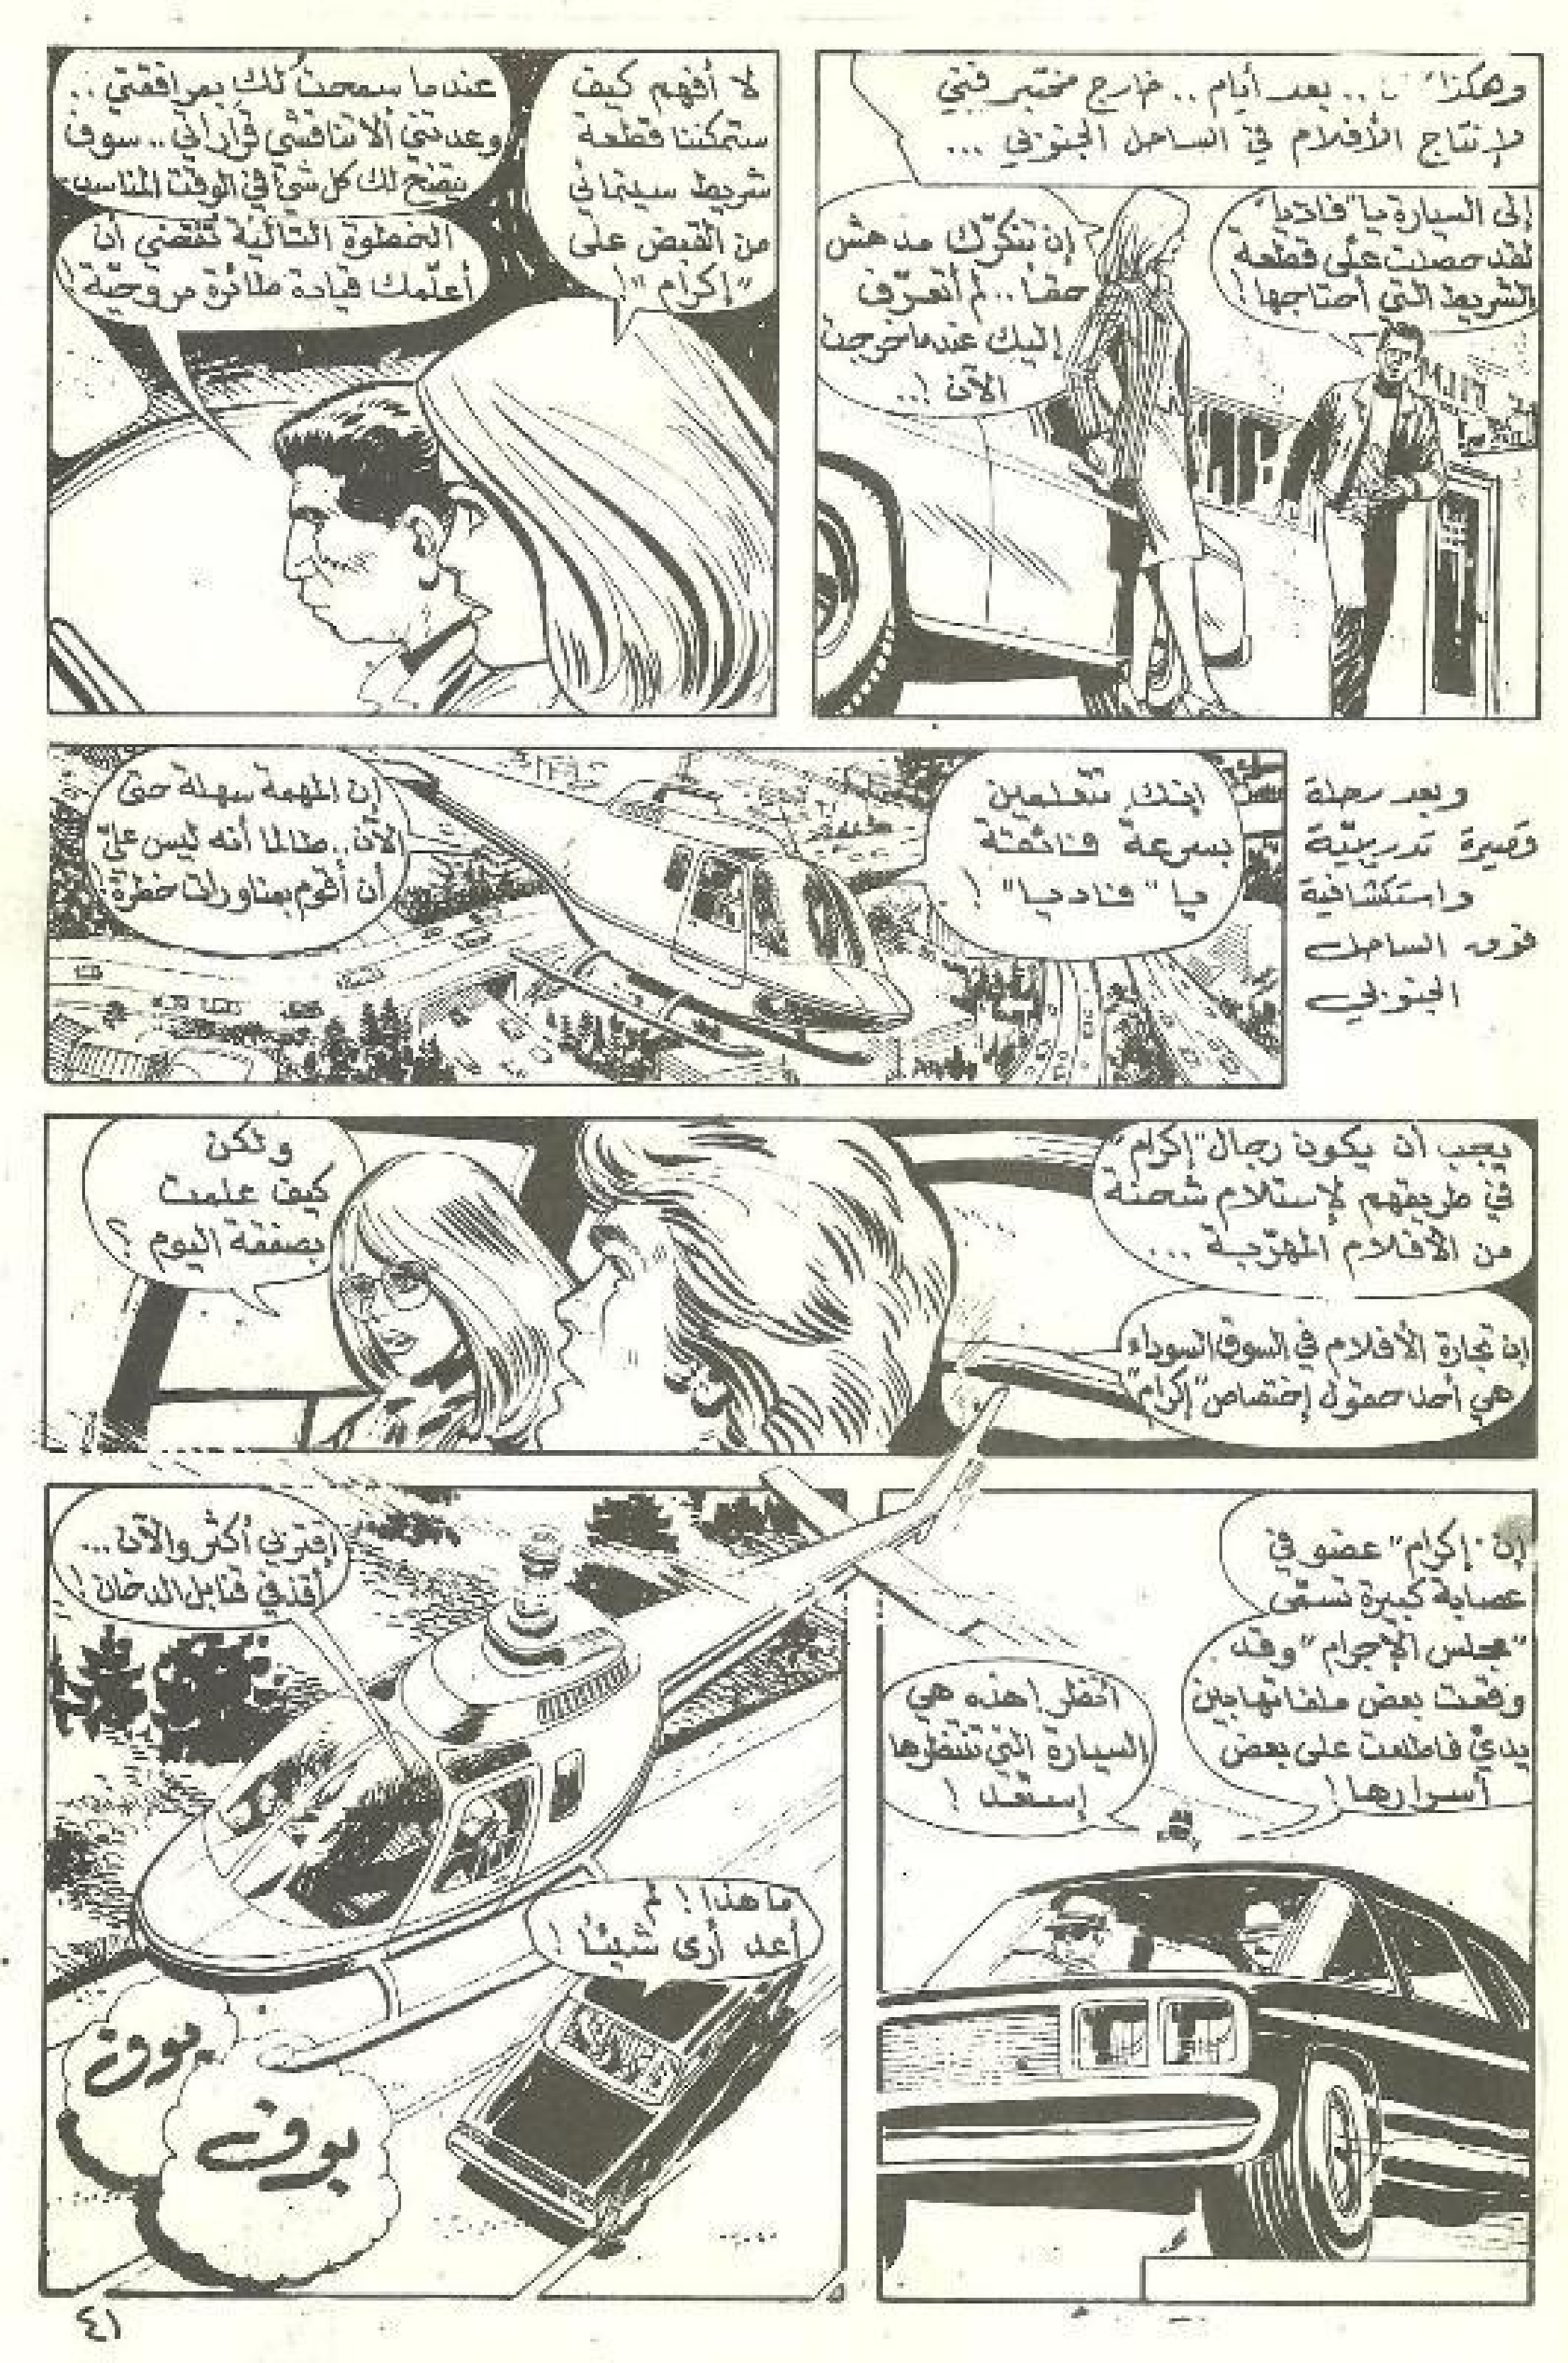 وهكذا .. بعد أيام .. خارج مختبر فني
لإنتاج الأفلام في الساحل الجنوبي ...
إلى السيارة يا "فاديا"
لقد حصلت على قطعة
الشريط التي أحتاجها!
إن تنكّرك مدهش
حقاً .. لم أتعرّف
إليك عندما خرجت
الآن !..
FILM
لا أفهم كيف
ستمكننا قطعة
شريط سينمائي
من القبض على
"إكرام"!
عندما سمحت لك بمرافقتي ..
وعدتني ألا تناقشي قراراتي .. سوف
يتضح لك كل شيء في الوقت المناسب
الخطوة التالية تقتضي أن
أعلّمك قيادة طائرة مروحيّة!
وبعد رحلة
قصيرة تدريبيّة
واستكشافية
فوق الساحل
الجنوبي
إنك تتعلمين
بسرعة فائقة
يا "فاديا" !
إن المهمة سهلة حتى
الآن .. طالما أنه ليس عليّ
أن أقوم بمناورات خطرة!
يجب أن يكون رجال "إكرام"
في طريقهم لإستلام شحنة
من الأفلام المهرّبة ...
إن تجارة الأفلام في السوق السوداء
هي أحد حقول إختصاص "إكرام"
ولكن
كيف علمت
بصفقة اليوم ؟
إن "إكرام" عضو في
عصابة كبيرة تسمّى
"مجلس الإجرام" وقد
وقعت بعض ملفاتها بين
يديّ فاطلعت على بعض
أسرارها !
أنظر! هذه هي
السيارة التي تنتظرها
إستعد !
إقتربي أكثر والآن ...
أقذفي قنابل الدخان !
ما هذا ! لم
أعد أرى شيئاً !
بوف
بوف
٤١